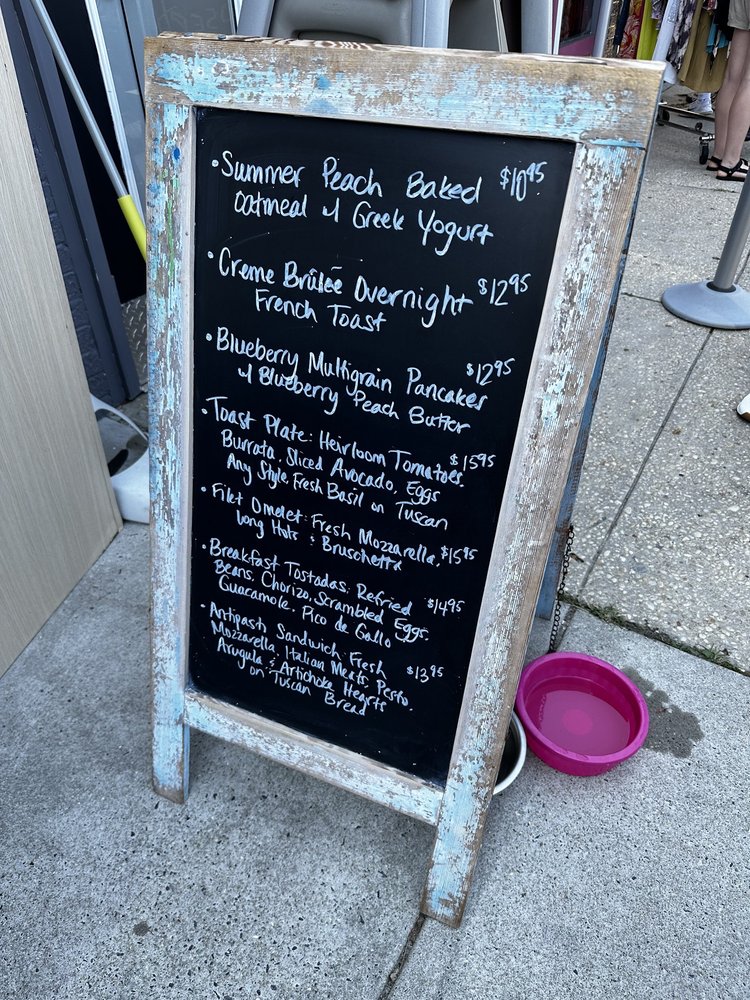 • Summer Peach Baked $10.95
Oatmeal w/ Greek Yogurt
• Creme Brûlée Overnight $12.95
French Toast
• Blueberry Multigrain Pancakes $12.95
w/ Blueberry Peach Butter
• Toast Plate: Heirloom Tomatoes, $15.95
Burrata, Sliced Avocado, Eggs
Any Style, Fresh Basil on Tuscan
• Filet Omelet: Fresh Mozzarella, $15.95
Long Hots & Bruschetta
• Breakfast Tostadas: Refried $14.95
Beans, Chorizo, Scrambled Eggs,
Guacamole, Pico de Gallo
• Antipasti Sandwich: Fresh $13.95
Mozzarella, Italian Meats, Pesto,
Arugula & Artichoke Hearts
on Tuscan Bread